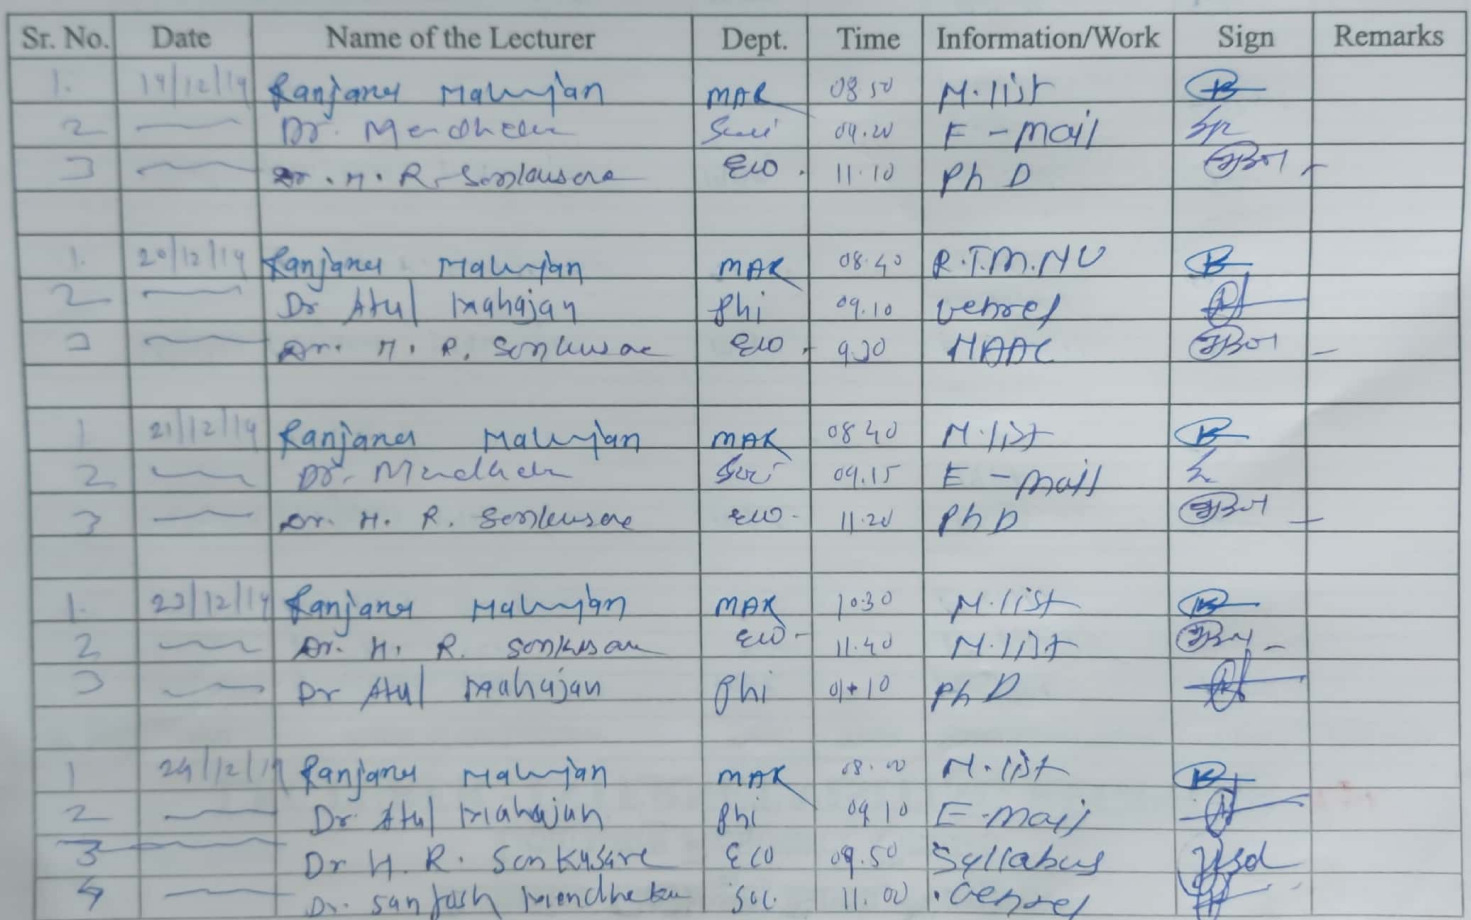 Sr. No. Date Name of the Lecturer Dept. Time Information/Work Sign Remarks
1. 19/12/19 Ranjana Mahajan MAR 08 50 M.list
2 Dr. Mendheku 09.20 E-mail
3 Dr. H. R. Sonkusare ECO. 11.10 Ph D
1. 20/12/19 Ranjana Mahajan MAR 08.40 R.T.M.NU
2 Dr Atul Mahajan Phi 09.10
3 Dr. H. R. Sonkusare ECO. 9.30 NAAC
1 21/12/19 Ranjana Mahajan MAR 08 40 M.list
2 Dr. 09.15 E-mail
3 Dr. H. R. Sonkusare ECO. 11.20 Ph D
1. 23/12/19 Ranjana Mahajan MAR 10.30 M.list
2 Dr. H. R. Sonkusare ECO- 11.40 M.list
3 Dr Atul Mahajan Phi 01.10 Ph D
1 24/12/19 Ranjana Mahajan MAR M.list
2 Dr. Atul Mahajan Phi 09 10 E-mail
3 Dr H. R. Sonkusare ECO 09.50 Syllabus
4 Dr. Santosh Soc. 11.00